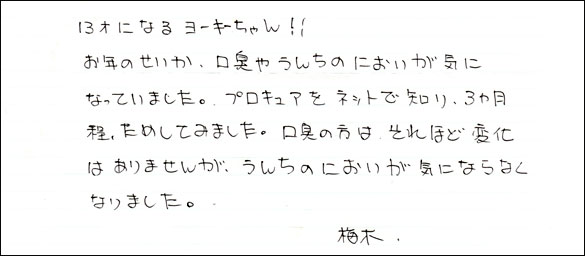 13才になるヨーキーちゃん!!
お年のせいか、口臭やうんちのにおいが気に
なっていました。プロキュアをネットで知り、3ヵ月
程、ためしてみました。口臭の方は、それほど変化
はありませんが、うんちのにおいが気にならなく
なりました。
梅木.